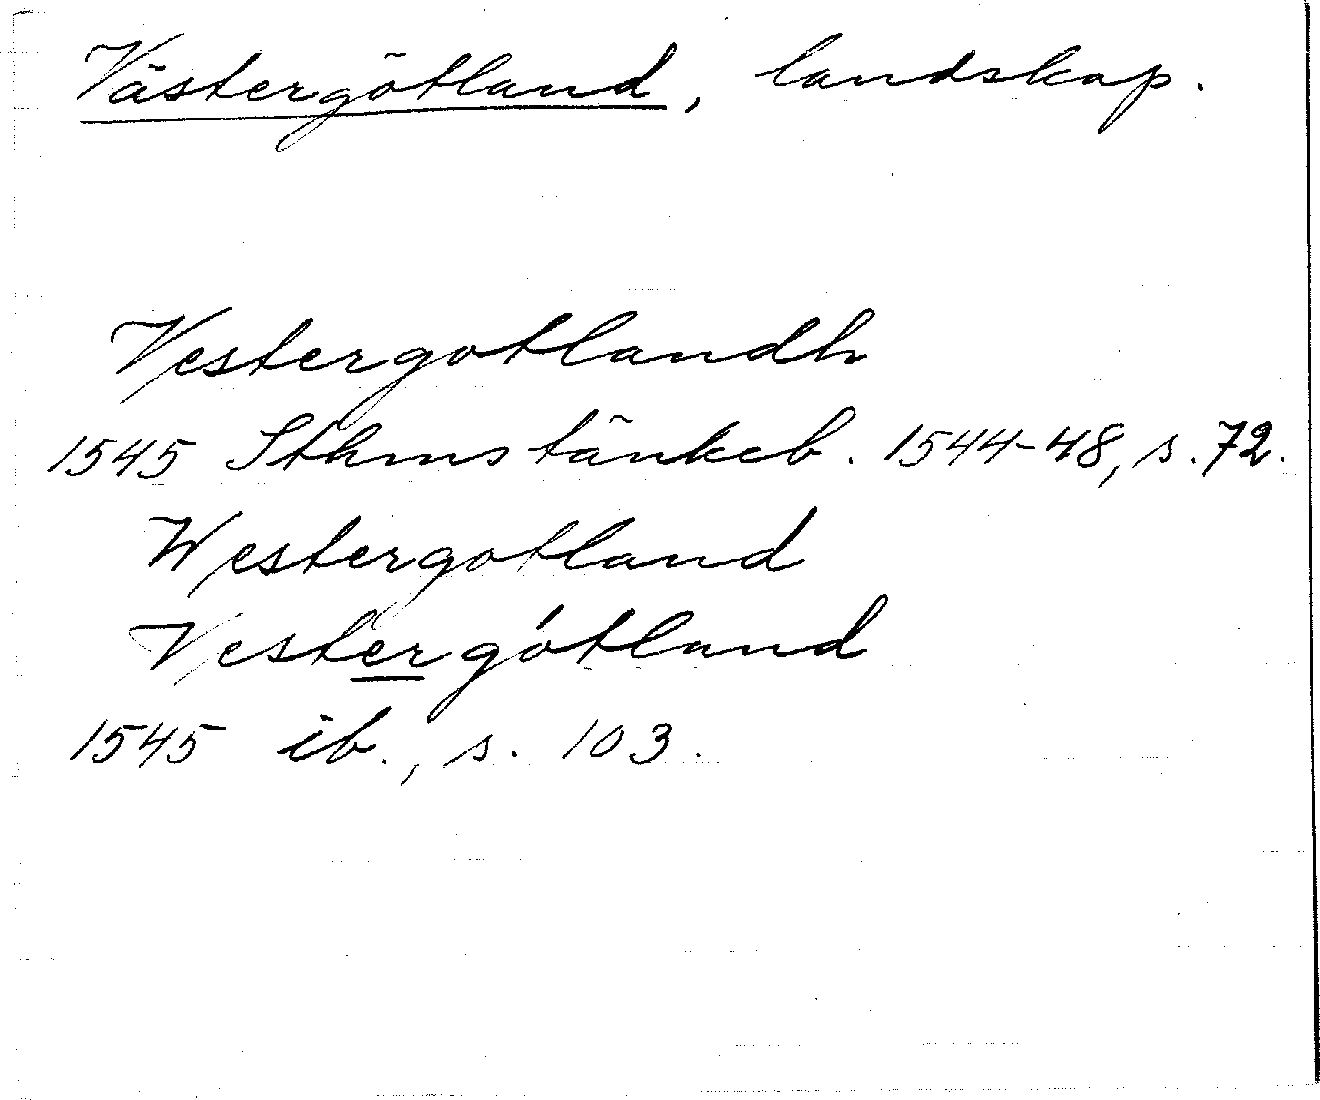 Västergötland, landskap.
Vestergotlandh
1545 Sthms tänkeb. 1544-48, s. 72.
Westergotland
Vestergótland
1545 ib., s. 103.